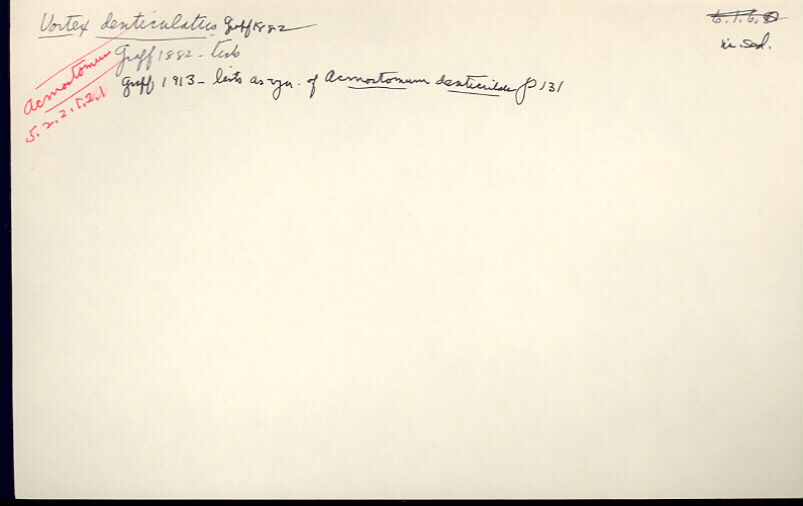 Vortex denticulatus Graff 1882
Graff 1882 -
Graff 1913 - lists as syn. of Acmostomum denticulatum p 131
Acmostomum
5.2.2.1.2.1
6.1.6.
in sed.